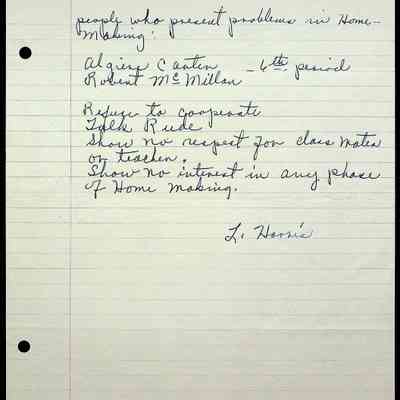 people who present problems in Home-
Making:
Algiere Canten - 6th period
Robert McMillan
Refuse to cooperate
Talk Rude
Show no respect for class mates
or teacher.
Show no interest in any phase
of Home Making.
L. Harris